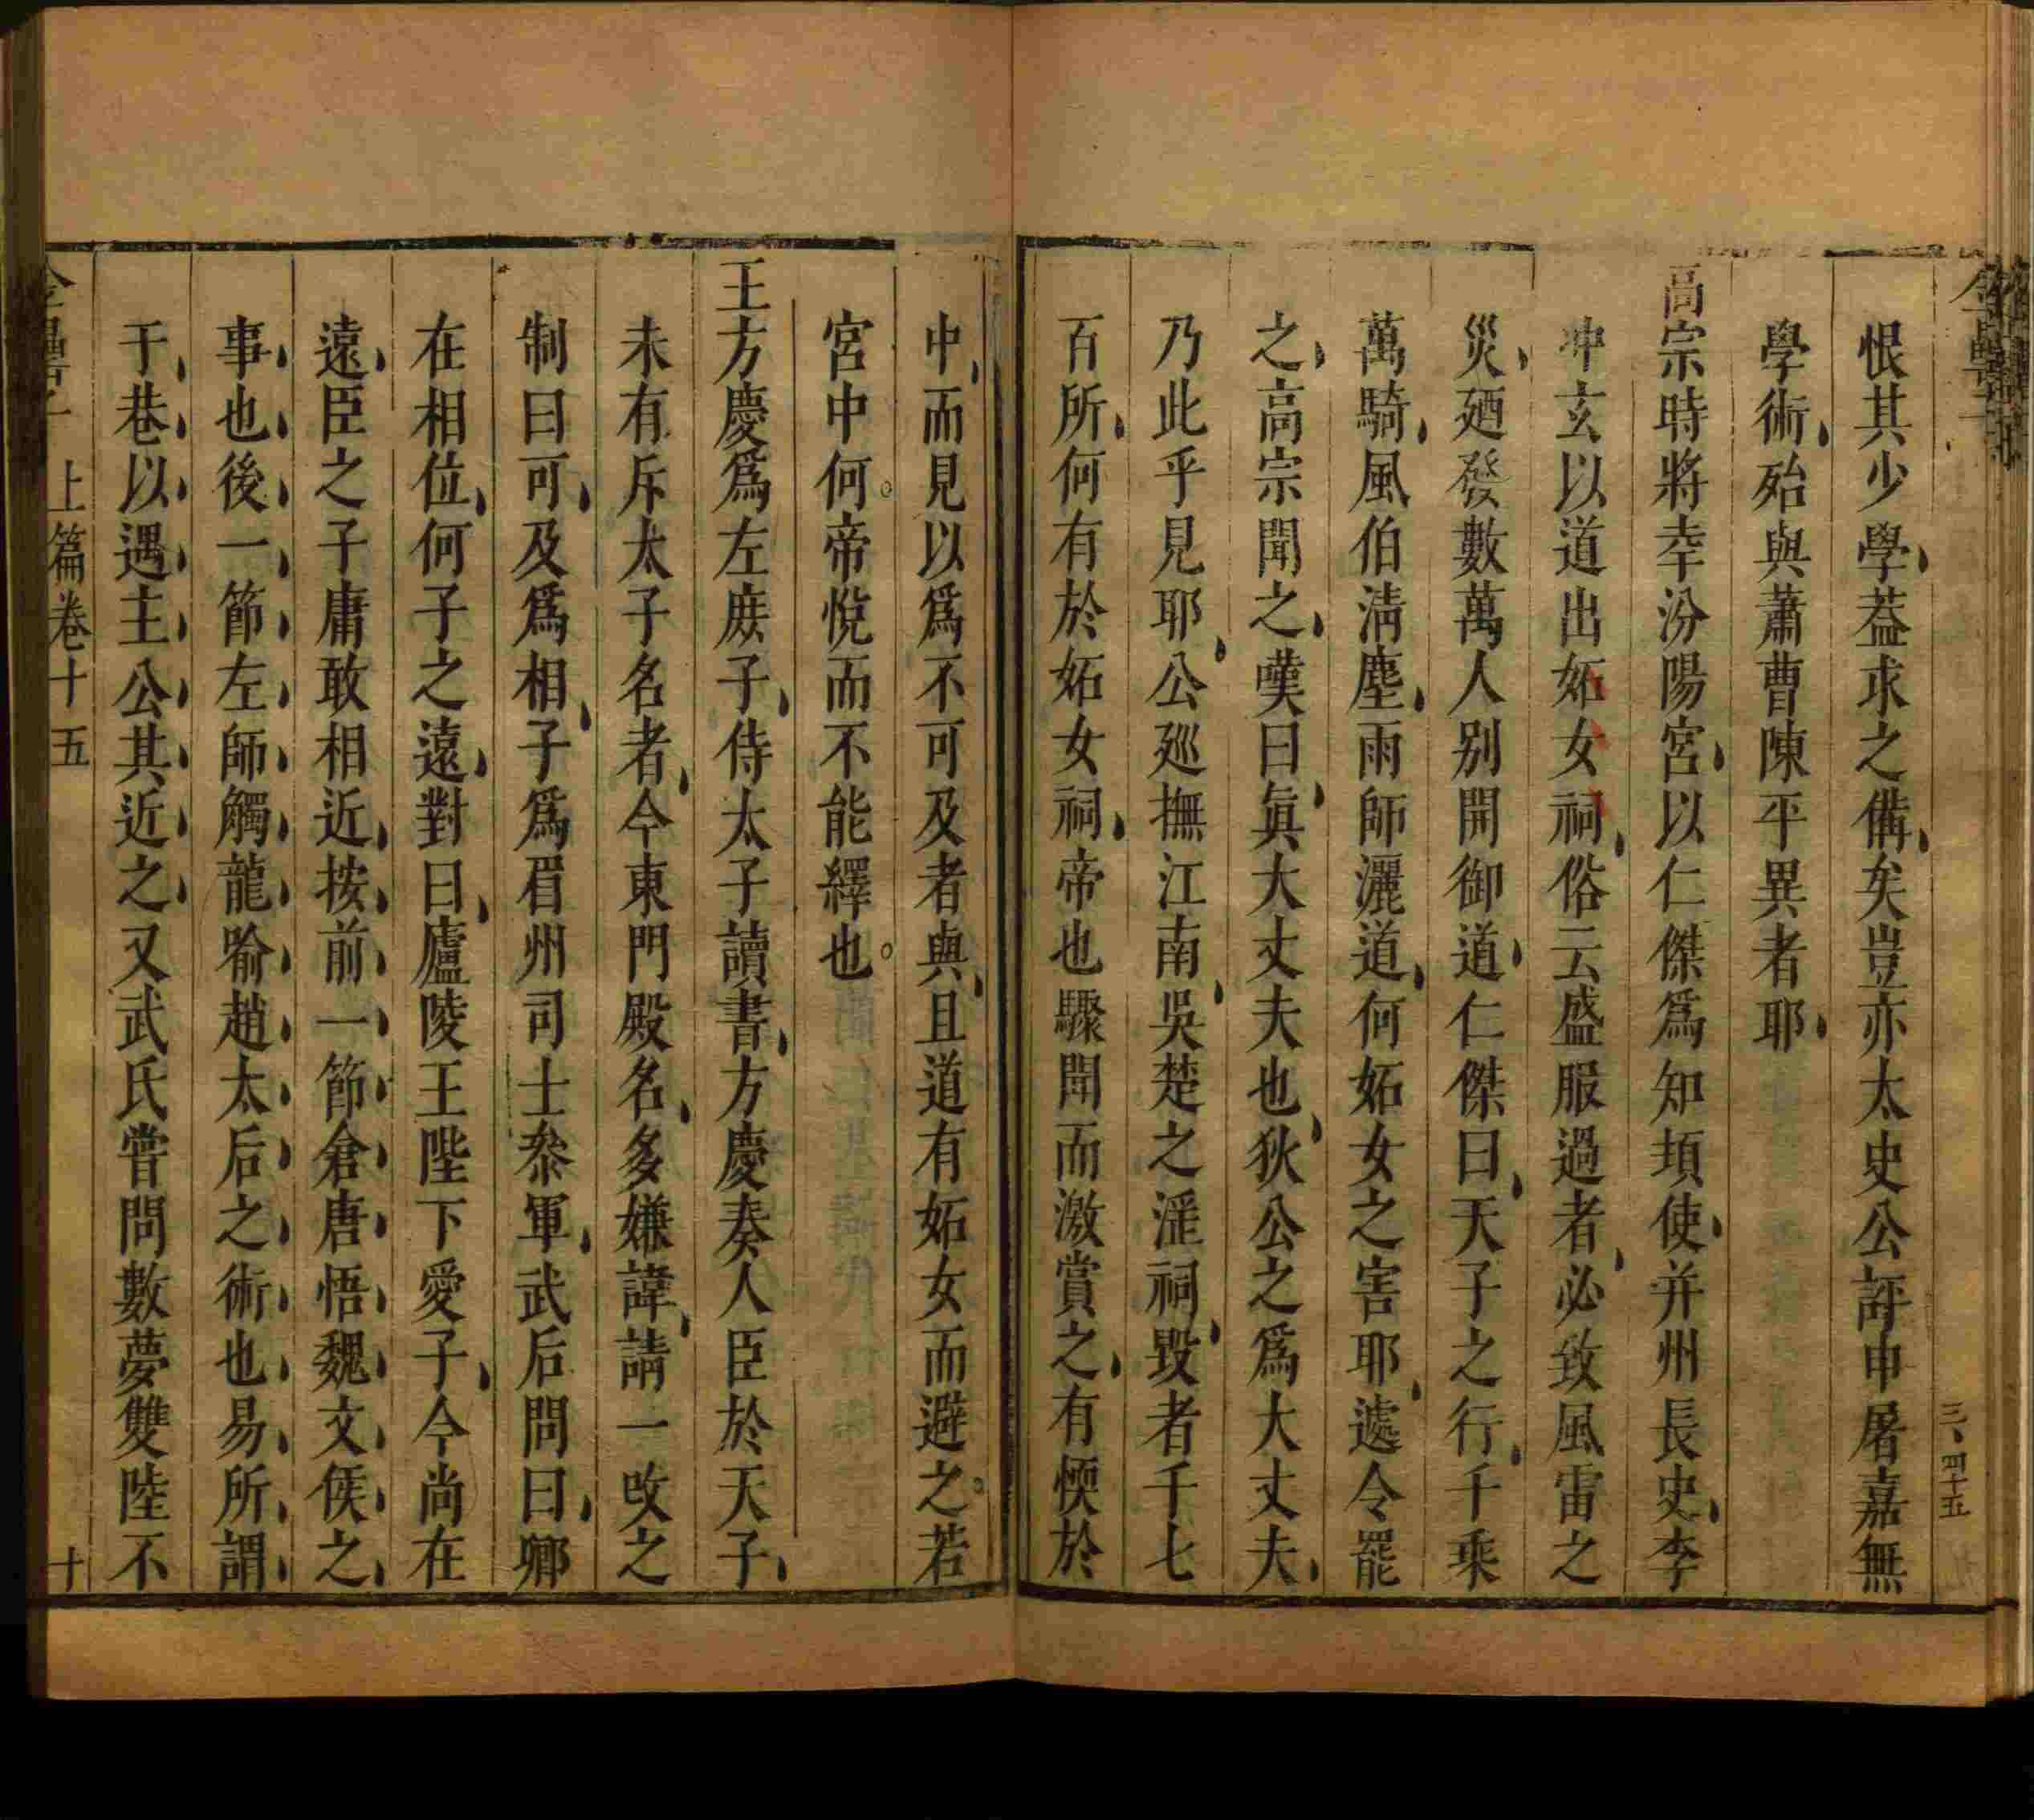 恨其少學蓋求之備矣豈亦太史公評申屠嘉無
學術殆與蕭曹陳平異者耶
高宗時將幸汾陽宮以仁傑爲知頓使并州長史李
冲玄以道出妬女祠俗云盛服過者必致風雷之
災廼發數萬人別開御道仁傑曰天子之行千乘
萬騎風伯淸塵雨師灑道何妬女之害耶遽令罷
之高宗聞之嘆曰眞大丈夫也狄公之爲大丈夫
乃此乎見耶公廵撫江南吳楚之滛祠毀者千七
百所何有於妬女祠帝也驟聞而激賞之有愞於
中而見以爲不可及者與且道有妬女而避之若
宮中何帝悅而不能繹也
王方慶爲左庶子侍太子讀書方慶奏人臣於天子
未有斥太子名者今東門殿名多嫌諱請一改之
制曰可及爲相子爲眉州司士叅軍武后問曰卿
在相位何子之遠對曰廬陵王陛下愛子今尚在
遠臣之子庸敢相近按前一節倉唐悟魏文侯之
事也後一節左師觸龍喻趙太后之術也易所謂
于巷以遇主公其近之又武氏嘗問數夢雙陸不
上篇卷十五
十
三、四十五